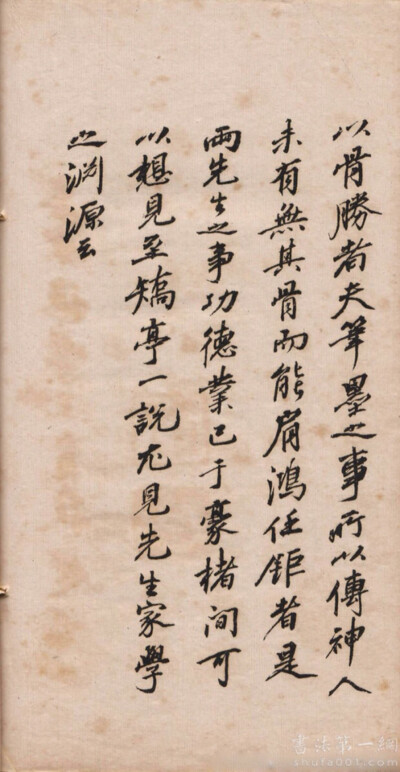 以骨勝者夫筆墨之事所以傳神人
未有無其骨而能肩鴻任鉅者是
兩先生之事功德業已于豪楮間可
以想見至矯亭一說尤見先生家學
之淵源云
書法第一網
shufa001.com